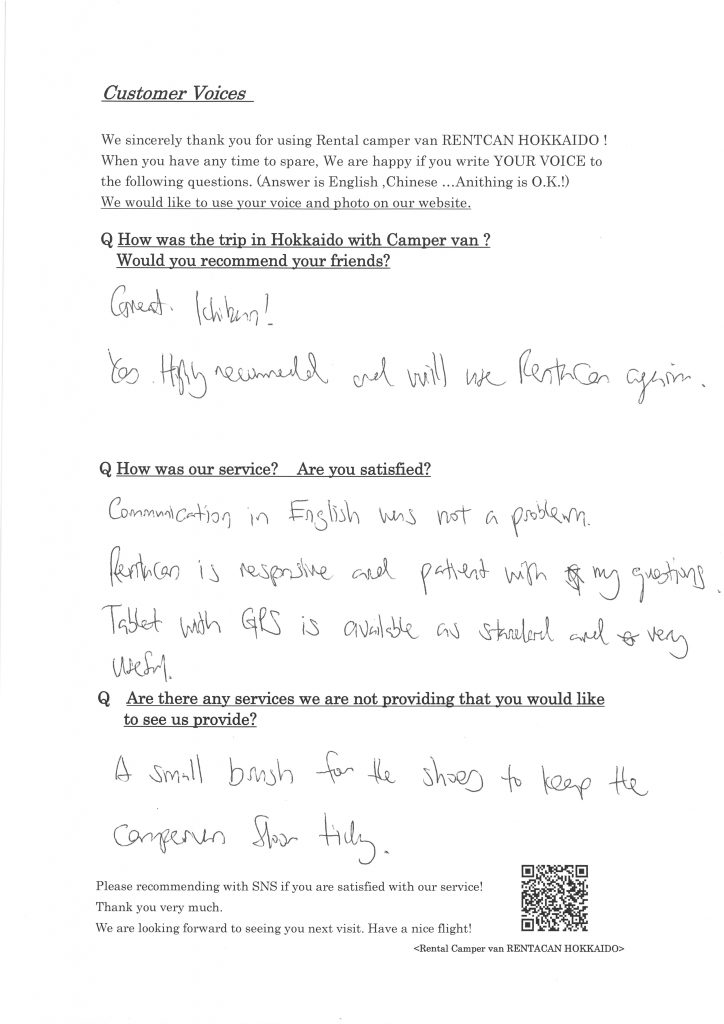 Customer Voices
We sincerely thank you for using Rental camper van RENTCAN HOKKAIDO !
When you have any time to spare, We are happy if you write YOUR VOICE to
the following questions. (Answer is English ,Chinese …Anithing is O.K.!)
We would like to use your voice and photo on our website.
Q How was the trip in Hokkaido with Camper van ?
Would you recommend your friends?
Great. Ichiban!
Yes. Highly recommended and will use RentaCan again.
Q How was our service? Are you satisfied?
Communication in English was not a problem.
RentaCan is responsive and patient with my questions.
Tablet with GPS is available as standard and very
useful.
Q Are there any services we are not providing that you would like
to see us provide?
A small brush for the shoes to keep the
campervan floor tidy.
Please recommending with SNS if you are satisfied with our service!
Thank you very much.
We are looking forward to seeing you next visit. Have a nice flight!
<Rental Camper van RENTACAN HOKKAIDO>